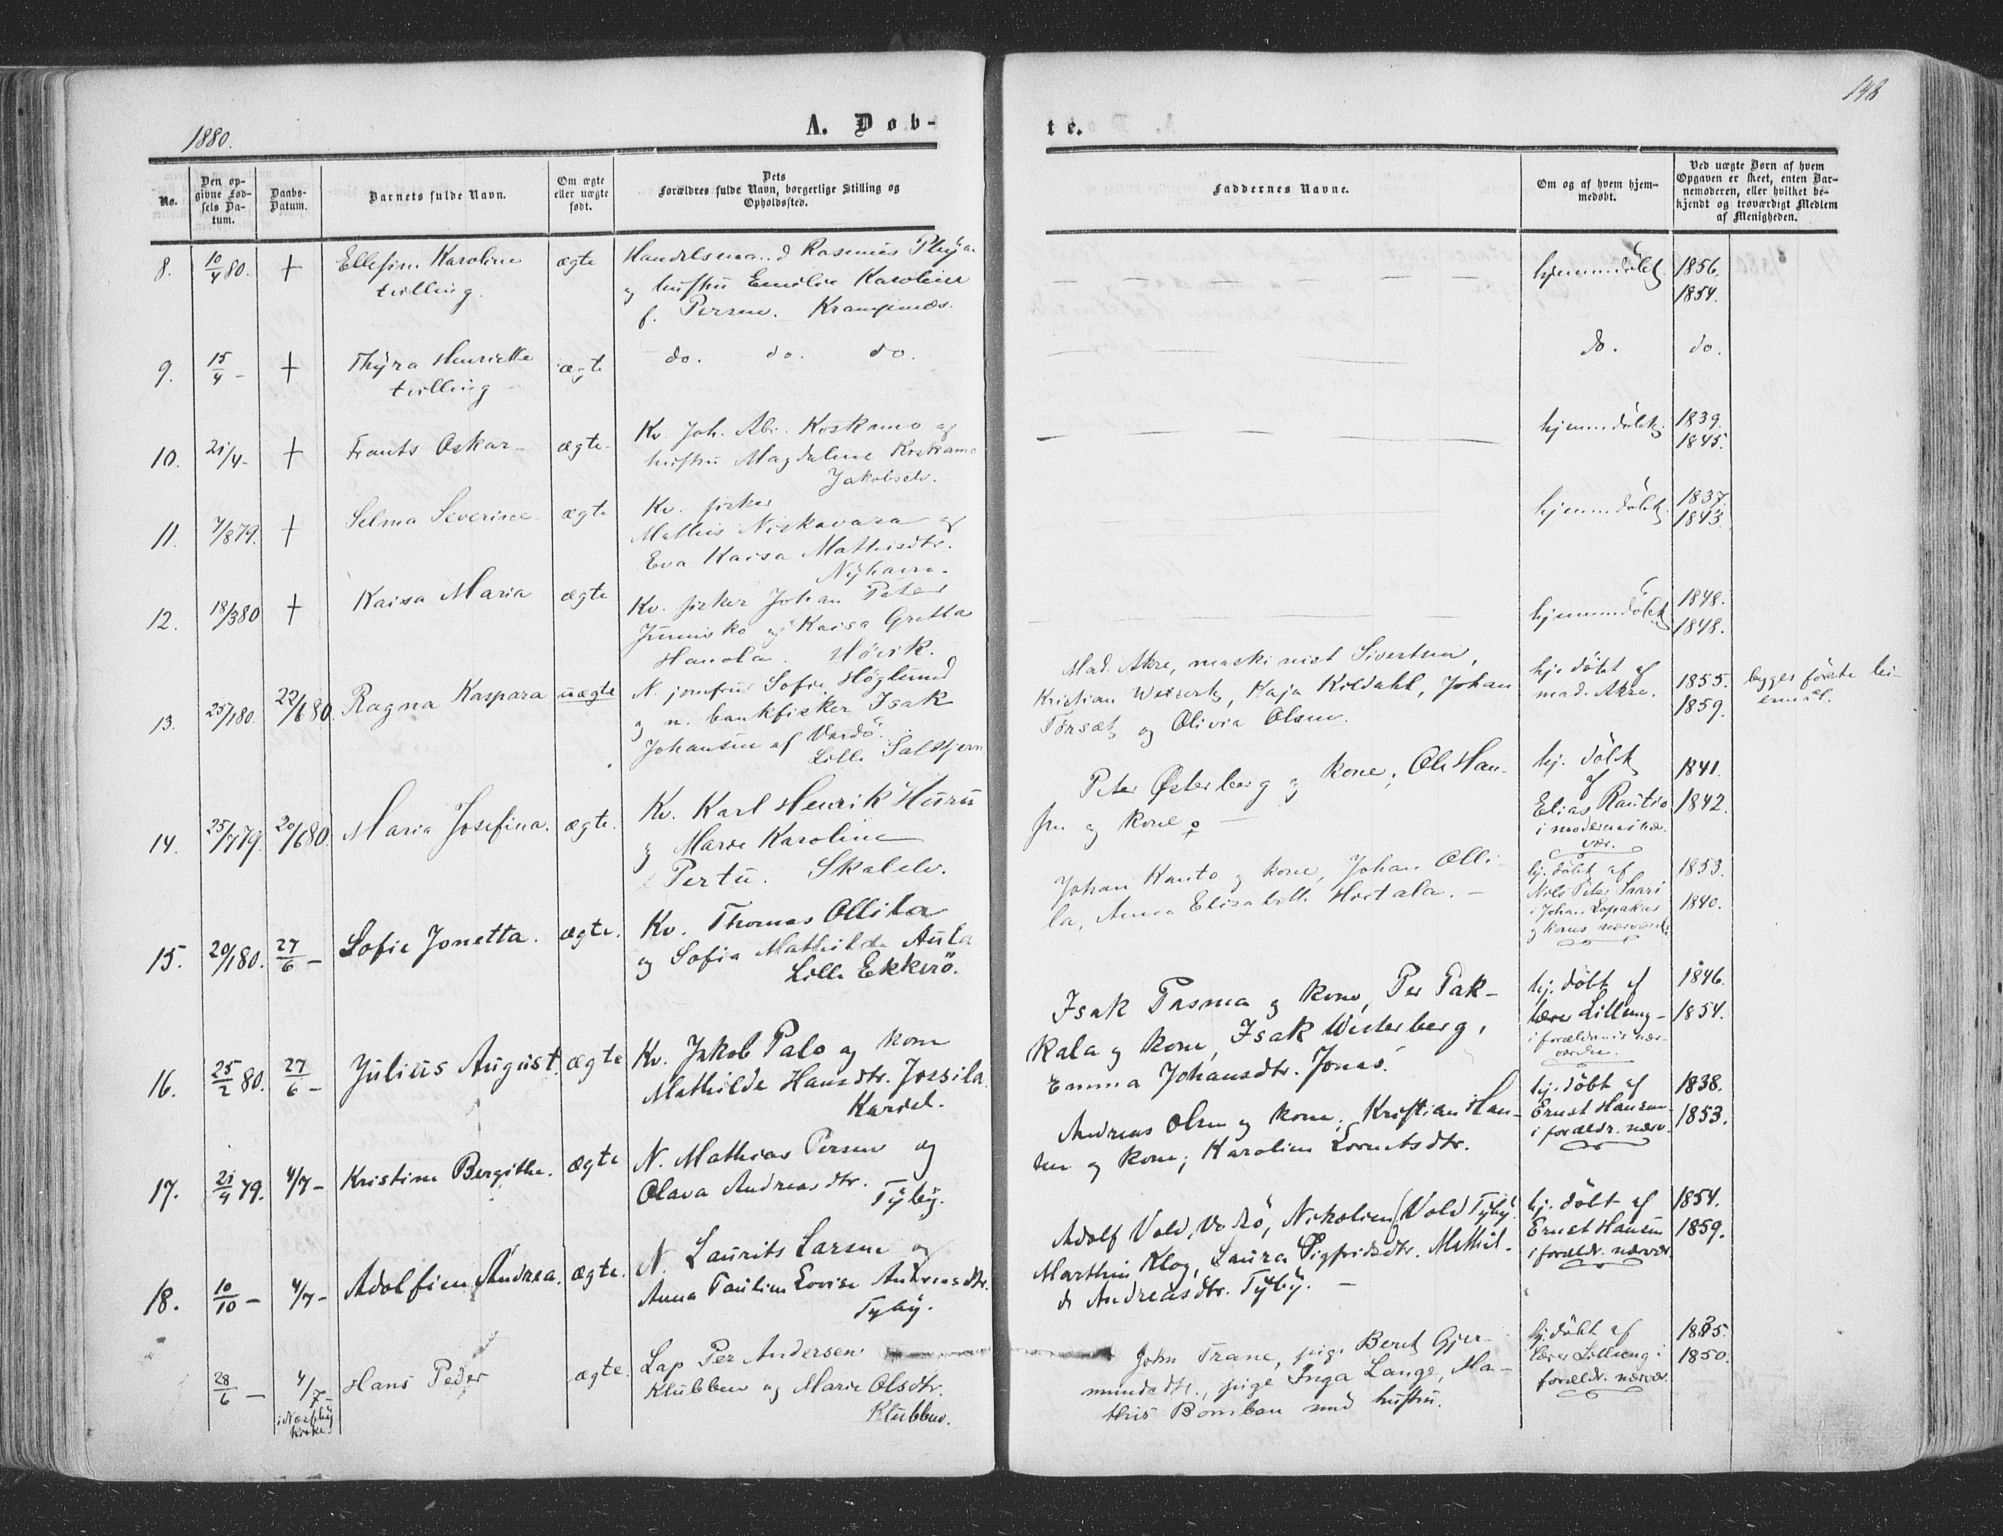 1880.
A. Døb-
te.
148
No.
Den op-
givne Fød-
sels Da-
tum.
Daabs-
Datum.
Barnets fulde Navn.
Om ægte
eller uægte
født.
Dets
Forældres fulde Navn, borgerlige Stilling og
Opholdssted.
Faddernes Navne.
Om og af hvem hjem-
medøbt.
Ved uægte Børn af hvem
Opgaven er skeet, enten Bar-
nemoderen, eller hvilket be-
kjendt og troværdigt Medlem
af Menigheden.
8. 10/4 80. + Ellefine Karoline
tvilling.
ægte
Handelsmand Rasmus
og hustru Emilie Karoline
f. Persen. Krampenæs.
hjemmedøbt. 1856.
1854.
9. 15/4 - + Thyra Henriette
tvilling -
ægte
do. do. do.
do. do.
10. 21/4 - + Frants Oskar -
ægte -
Kv. Joh. Abr. Koskamo og
hustru Magdalene Koskamo
Jakobselv.
hjemmedøbt. 1839.
1845.
11. 7/8 79. + Selma Severine
ægte
Kv. fisker
Mathis Niskavara og
Eva Kaisa Mathisdtr.
Nyhavn.
hjemmedøbt. 1837.
1843.
12. 18/3 80 + Kaisa Maria
ægte
Kv. fisker Johan Peter
Junisko og Kaisa Gretta
Hanola. Høvik.
hjemmedøbt 1848.
1848.
13. 25/1 80. 22/6 80. Ragna Kaspara
uægte
N. jomfru Sofie Höglund
og n. bankfisker Isak
Johansen af Vardö.
Lille Saltstjern
Mad. Akre, maskinist Sivertsen,
Kristian Weisert, Kaja Kildahl, Johan
Torsæt og Olivia Olsen.
hj. døbt af
mad. Akre.
1855.
1859.
begges første lei-
ermål.
14. 25/7 79. 20/6 80. Maria Josefina.
ægte.
Kv. Karl Henrik Huru
og Marie Karoline
Pertu. Skalelv.
Peter Østerberg og kone, Ole Han-
sen og kone
hj. døbt
af
Elias Rautio
i moderens nær-
vær.
1841.
1842.
15. 20/1 80. 27/6 - Sofie Jonetta.
ægte.
Kv. Thomas Ollila
og Sofia Mathilde Aula
Lille Ekkerö.
Johan Kanto og kone, Johan Olli-
la, Anna Elisabeth Hietala. -
hj. døbt af
Nils Peter Saari
i Johan Lopakas
og kones nærværelse
1853.
1840.
16. 25/2 80. 27/6 - Julius August.
ægte
Kv. Jakob Palo og kone
Mathilde Hansdtr. Jossila
Kardel.
Isak Pasma og kone, Per Pak-
kala og kone, Isak Westerberg,
Emma Johansdtr. Jonas.
hj. døbt af
lærer Lilleng -
i forældrenes nær-
værelse.
1846.
1854.
17. 21/4 79. 4/7 - Kristine Bergithe.
ægte
N. Mathias Persen og
Olava Andreasdtr.
Tyby.
Andreas Olsen og kone; Kristian Han-
sen og kone; Karoline Lorentsdtr.
hj. døbt af
Ernst Hansen
i forældr. nærv.
1838.
1853.
18. 10/10 - 4/7 - Adolfine Andrea.
ægte.
N. Laurits Larsen og
Anna Pauline Lovise Andreasdtr.
Tyby.
Adolf Vold, Vadsö, Nikoline Vold Tyby.
Marthin Klog, Laura Sigfridsdtr. Mathil-
de Andreasdtr. Tyby. -
hj. døbt af
Ernst Hansen
i forældr. nærvær.
1854.
1859.
28/6 - 4/7 -
i Næsseby
kirke.
Hans Peder
ægte.
Lap Per Andersen
Klubben og Marie Olsdtr.
Klubben.
John Trane, pige Beret Gjer-
mundsdtr., pige Inga Lange, Ma-
this Bomban med hustru.
hj. døbt af
lærer Lilleng i
forældr. nærvær.
1885.
1850.